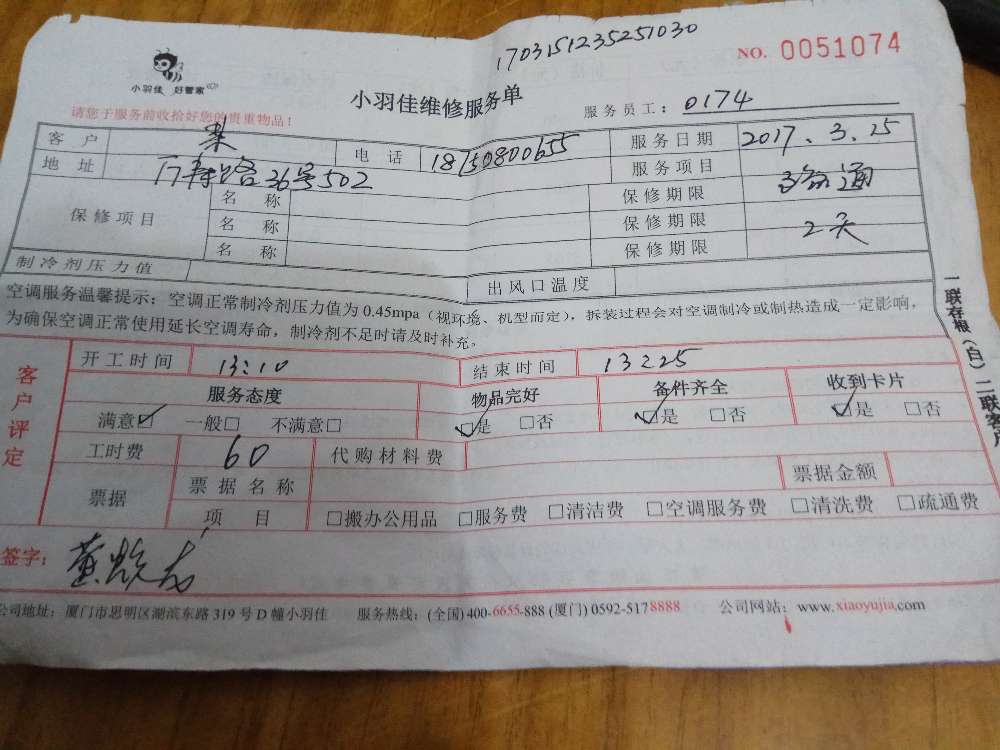 1703151235251030
NO. 0051074
小羽佳 好管家
小羽佳维修服务单
请您于服务前收拾好您的贵重物品！
服务员工：0174
客户 电话 18150800655 服务日期 2017.3.25
地址 36号502 服务项目 通
保修项目 名称 保修期限
名称 保修期限 2天
名称 保修期限
制冷剂压力值 出风口温度
空调服务温馨提示：空调正常制冷剂压力值为0.45mpa（视环境、机型而定），拆装过程会对空调制冷或制热造成一定影响，
为确保空调正常使用延长空调寿命，制冷剂不足时请及时补充。
一联存根（白）二联客户
客户评定
开工时间 13:10 结束时间 13:25
服务态度 物品完好 备件齐全 收到卡片
满意☑ 一般□ 不满意□ ☑是 □否 ☑是 □否 ☑是 □否
工时费 60 代购材料费
票据 票据名称 票据金额
项目 □搬办公用品 □服务费 □清洁费 □空调服务费 □清洗费 □疏通费
签字：黄
公司地址：厦门市思明区湖滨东路319号D幢小羽佳 服务热线：(全国)400-6655-888 (厦门)0592-5178888 公司网站：www.xiaoyujia.com